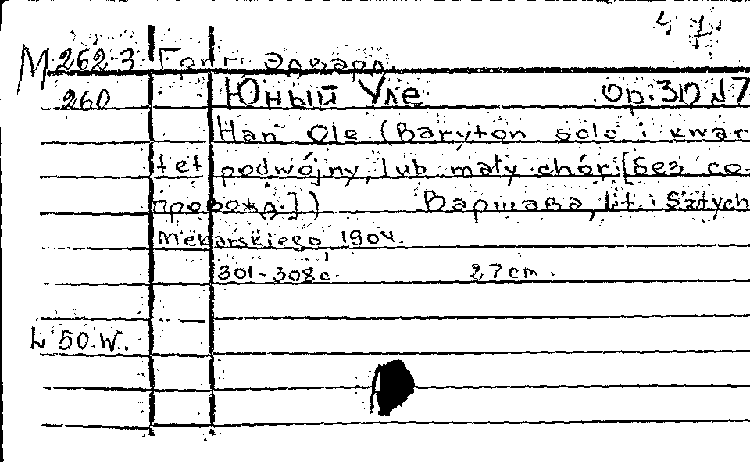 4 7.
М 262-3 Григ Эдвард.
260 Юный Уле Op.30 №7
Han Ole (Baryton solo i kwar
tet podwójny, lub mały chór[Без со
провожд.]) Варшава, lit. i Sztych
Mękarskiego 1904.
301-308 с. 27 cm.
L 50.W.